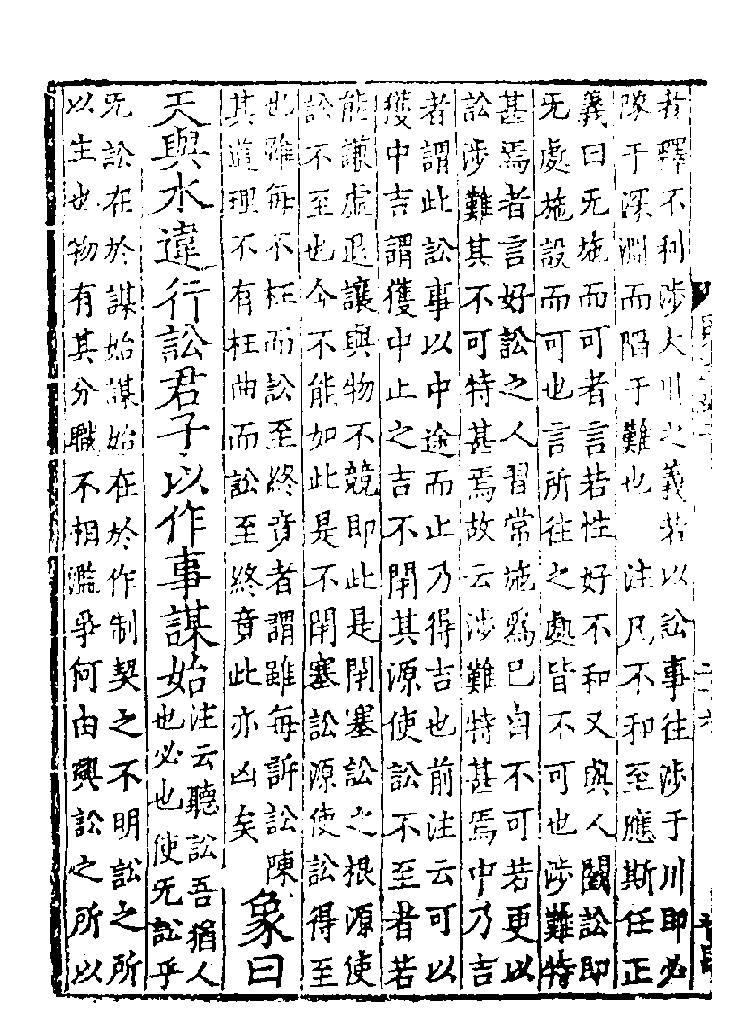 者釋不利涉大川之義若以訟事往涉于川即必
隊于深淵而陷于難也　注凡不和至應斯任正
義曰无施而可者言若性好不和又與人鬬訟即
无處施設而可也言所往之處皆不可也涉難特
甚焉者言好訟之人習常施爲已自不可若更以
訟涉難其不可特甚焉故云涉難特甚焉中乃吉
者謂此訟事以中途而止乃得吉也前注云可以
獲中吉謂獲中止之吉不閉其源使訟不至者若
能謙虛退讓與物不競即此是閉塞訟之根源使
訟不至也今不能如此是不閉塞訟源使訟得至
也雖每不枉而訟至終竟者謂雖每訴訟陳
其道理不有枉曲而訟至終竟此亦凶矣
象曰
天與水違行訟君子以作事謀始
注云聽訟吾猶人
也必也使无訟乎
无訟在於謀始謀始在於作制契之不明訟之所
以生也物有其分職不相濫爭何由興訟之所以